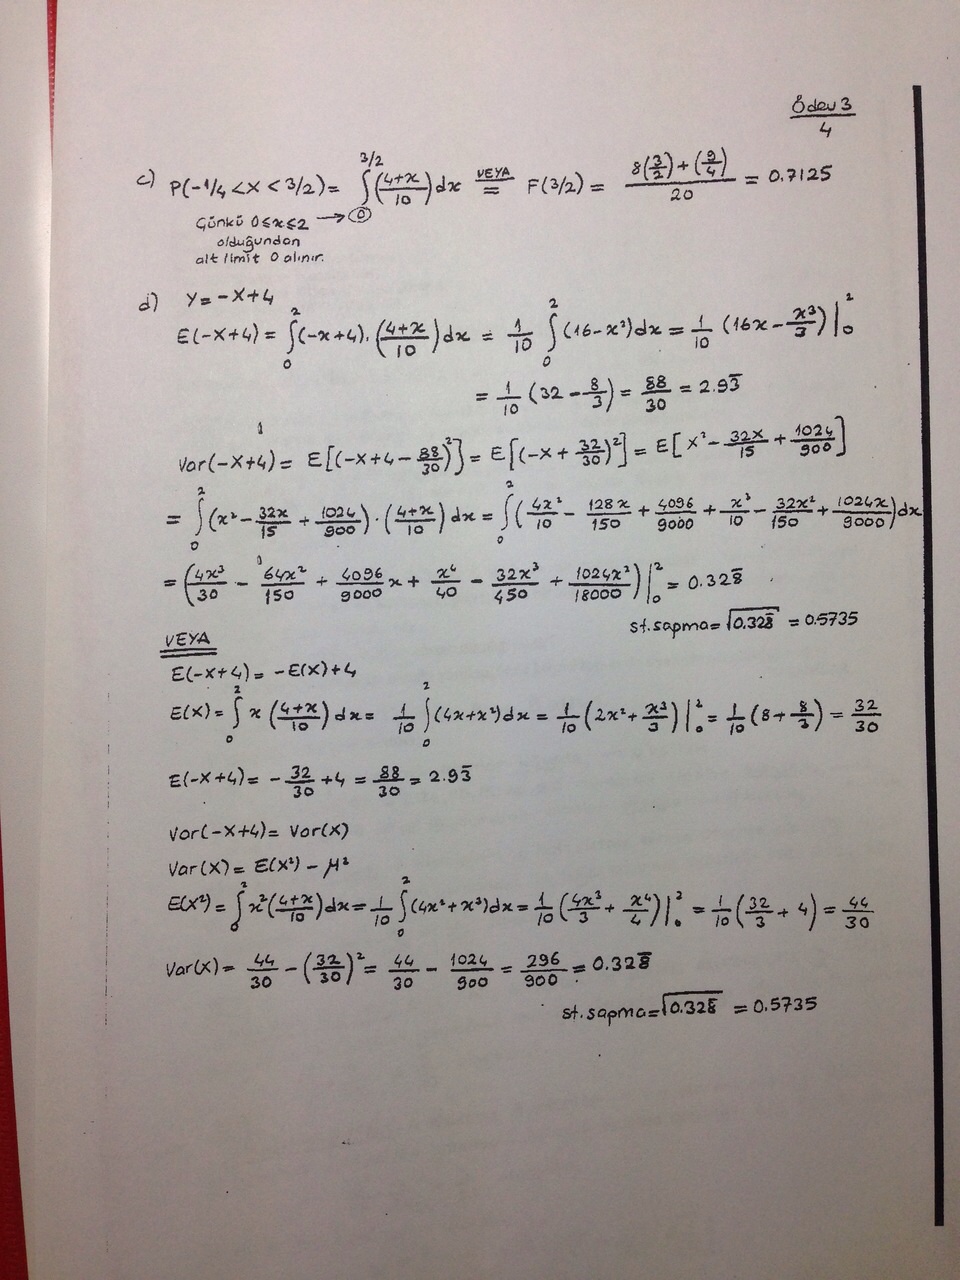 Ödev 3
4
c) P(-1/4 < X < 3/2) = ∫₀^{3/2} ((4+x)/10) dx VEYA = F(3/2) = (8(3/2) + (9/4))/20 = 0.7125
Çünkü 0≤x≤2 → 0
olduğundan
alt limit 0 alınır.
d) Y = -X+4
E(-X+4) = ∫₀² (-x+4).((4+x)/10) dx = 1/10 ∫₀² (16-x²)dx = 1/10 (16x - x³/3)|₀²
= 1/10 (32 - 8/3) = 88/30 = 2.93̅
Var(-X+4) = E[(-X+4 - 88/30)²] = E[(-X + 32/30)²] = E[X² - 32X/15 + 1024/900]
= ∫₀² (x² - 32x/15 + 1024/900).((4+x)/10) dx = ∫₀² (4x²/10 - 128x/150 + 4096/9000 + x³/10 - 32x²/150 + 1024x/9000) dx
= (4x³/30 - 64x²/150 + 4096/9000 x + x⁴/40 - 32x³/450 + 1024x²/18000)|₀² = 0.328̅
st.sapma = √0.328̅ = 0.5735
VEYA
E(-X+4) = -E(X)+4
E(X) = ∫₀² x((4+x)/10) dx = 1/10 ∫₀² (4x+x²)dx = 1/10 (2x² + x³/3)|₀² = 1/10 (8 + 8/3) = 32/30
E(-X+4) = -32/30 + 4 = 88/30 = 2.93̅
Var(-X+4) = Var(X)
Var(X) = E(X²) - μ²
E(X²) = ∫₀² x²((4+x)/10) dx = 1/10 ∫₀² (4x²+x³)dx = 1/10 (4x³/3 + x⁴/4)|₀² = 1/10 (32/3 + 4) = 44/30
Var(X) = 44/30 - (32/30)² = 44/30 - 1024/900 = 296/900 = 0.328̅
st.sapma = √0.328̅ = 0.5735